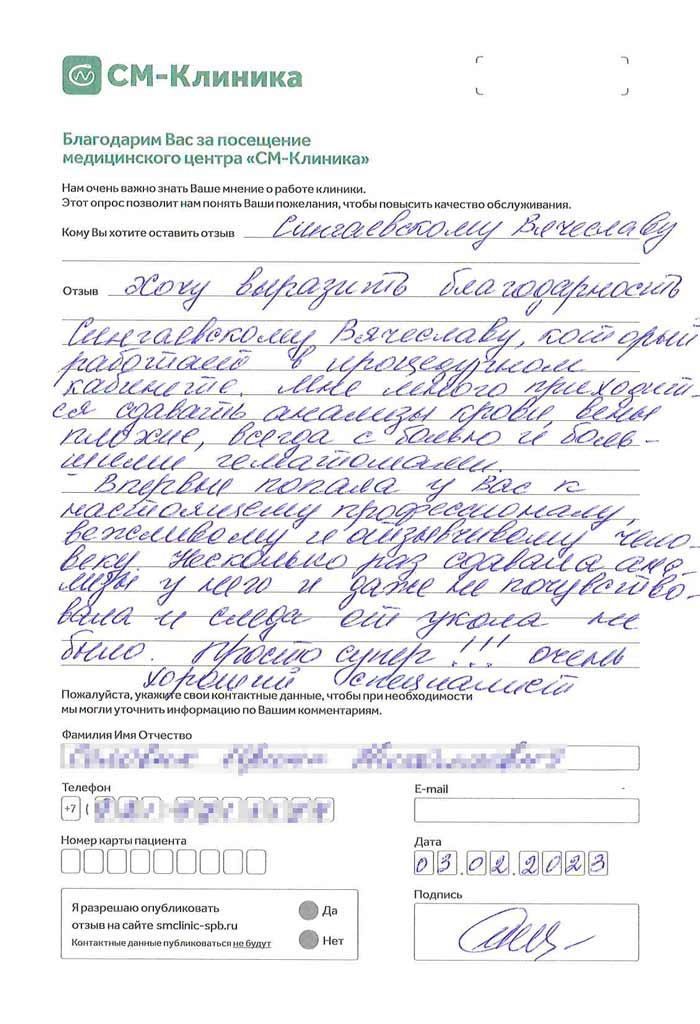 СМ-Клиника
Благодарим Вас за посещение
медицинского центра «СМ-Клиника»
Нам очень важно знать Ваше мнение о работе клиники.
Этот опрос позволит нам понять Ваши пожелания, чтобы повысить качество обслуживания.
Кому Вы хотите оставить отзыв Сингаевскому Вячеславу
Отзыв Хочу выразить благодарность
Сингаевскому Вячеславу, который
работает в процедурном
кабинете. Мне много приходит-
ся сдавать анализы крови, вены
плохие, всегда с болью и боль-
шими гематомами.
Впервые попала у вас к
настоящему профессионалу,
вежливому и отзывчивому чело-
веку. Несколько раз сдавала ана-
лизы у него и даже не почувство-
вала и следа от укола не
было. Просто супер!!! очень
хороший специалист
Пожалуйста, укажите свои контактные данные, чтобы при необходимости
мы могли уточнить информацию по Вашим комментариям.
Фамилия Имя Отчество
Телефон
+7 (
E-mail
Номер карты пациента
Дата
03.02.2023
Я разрешаю опубликовать
отзыв на сайте smclinic-spb.ru
Контактные данные публиковаться не будут
Да
Нет
Подпись